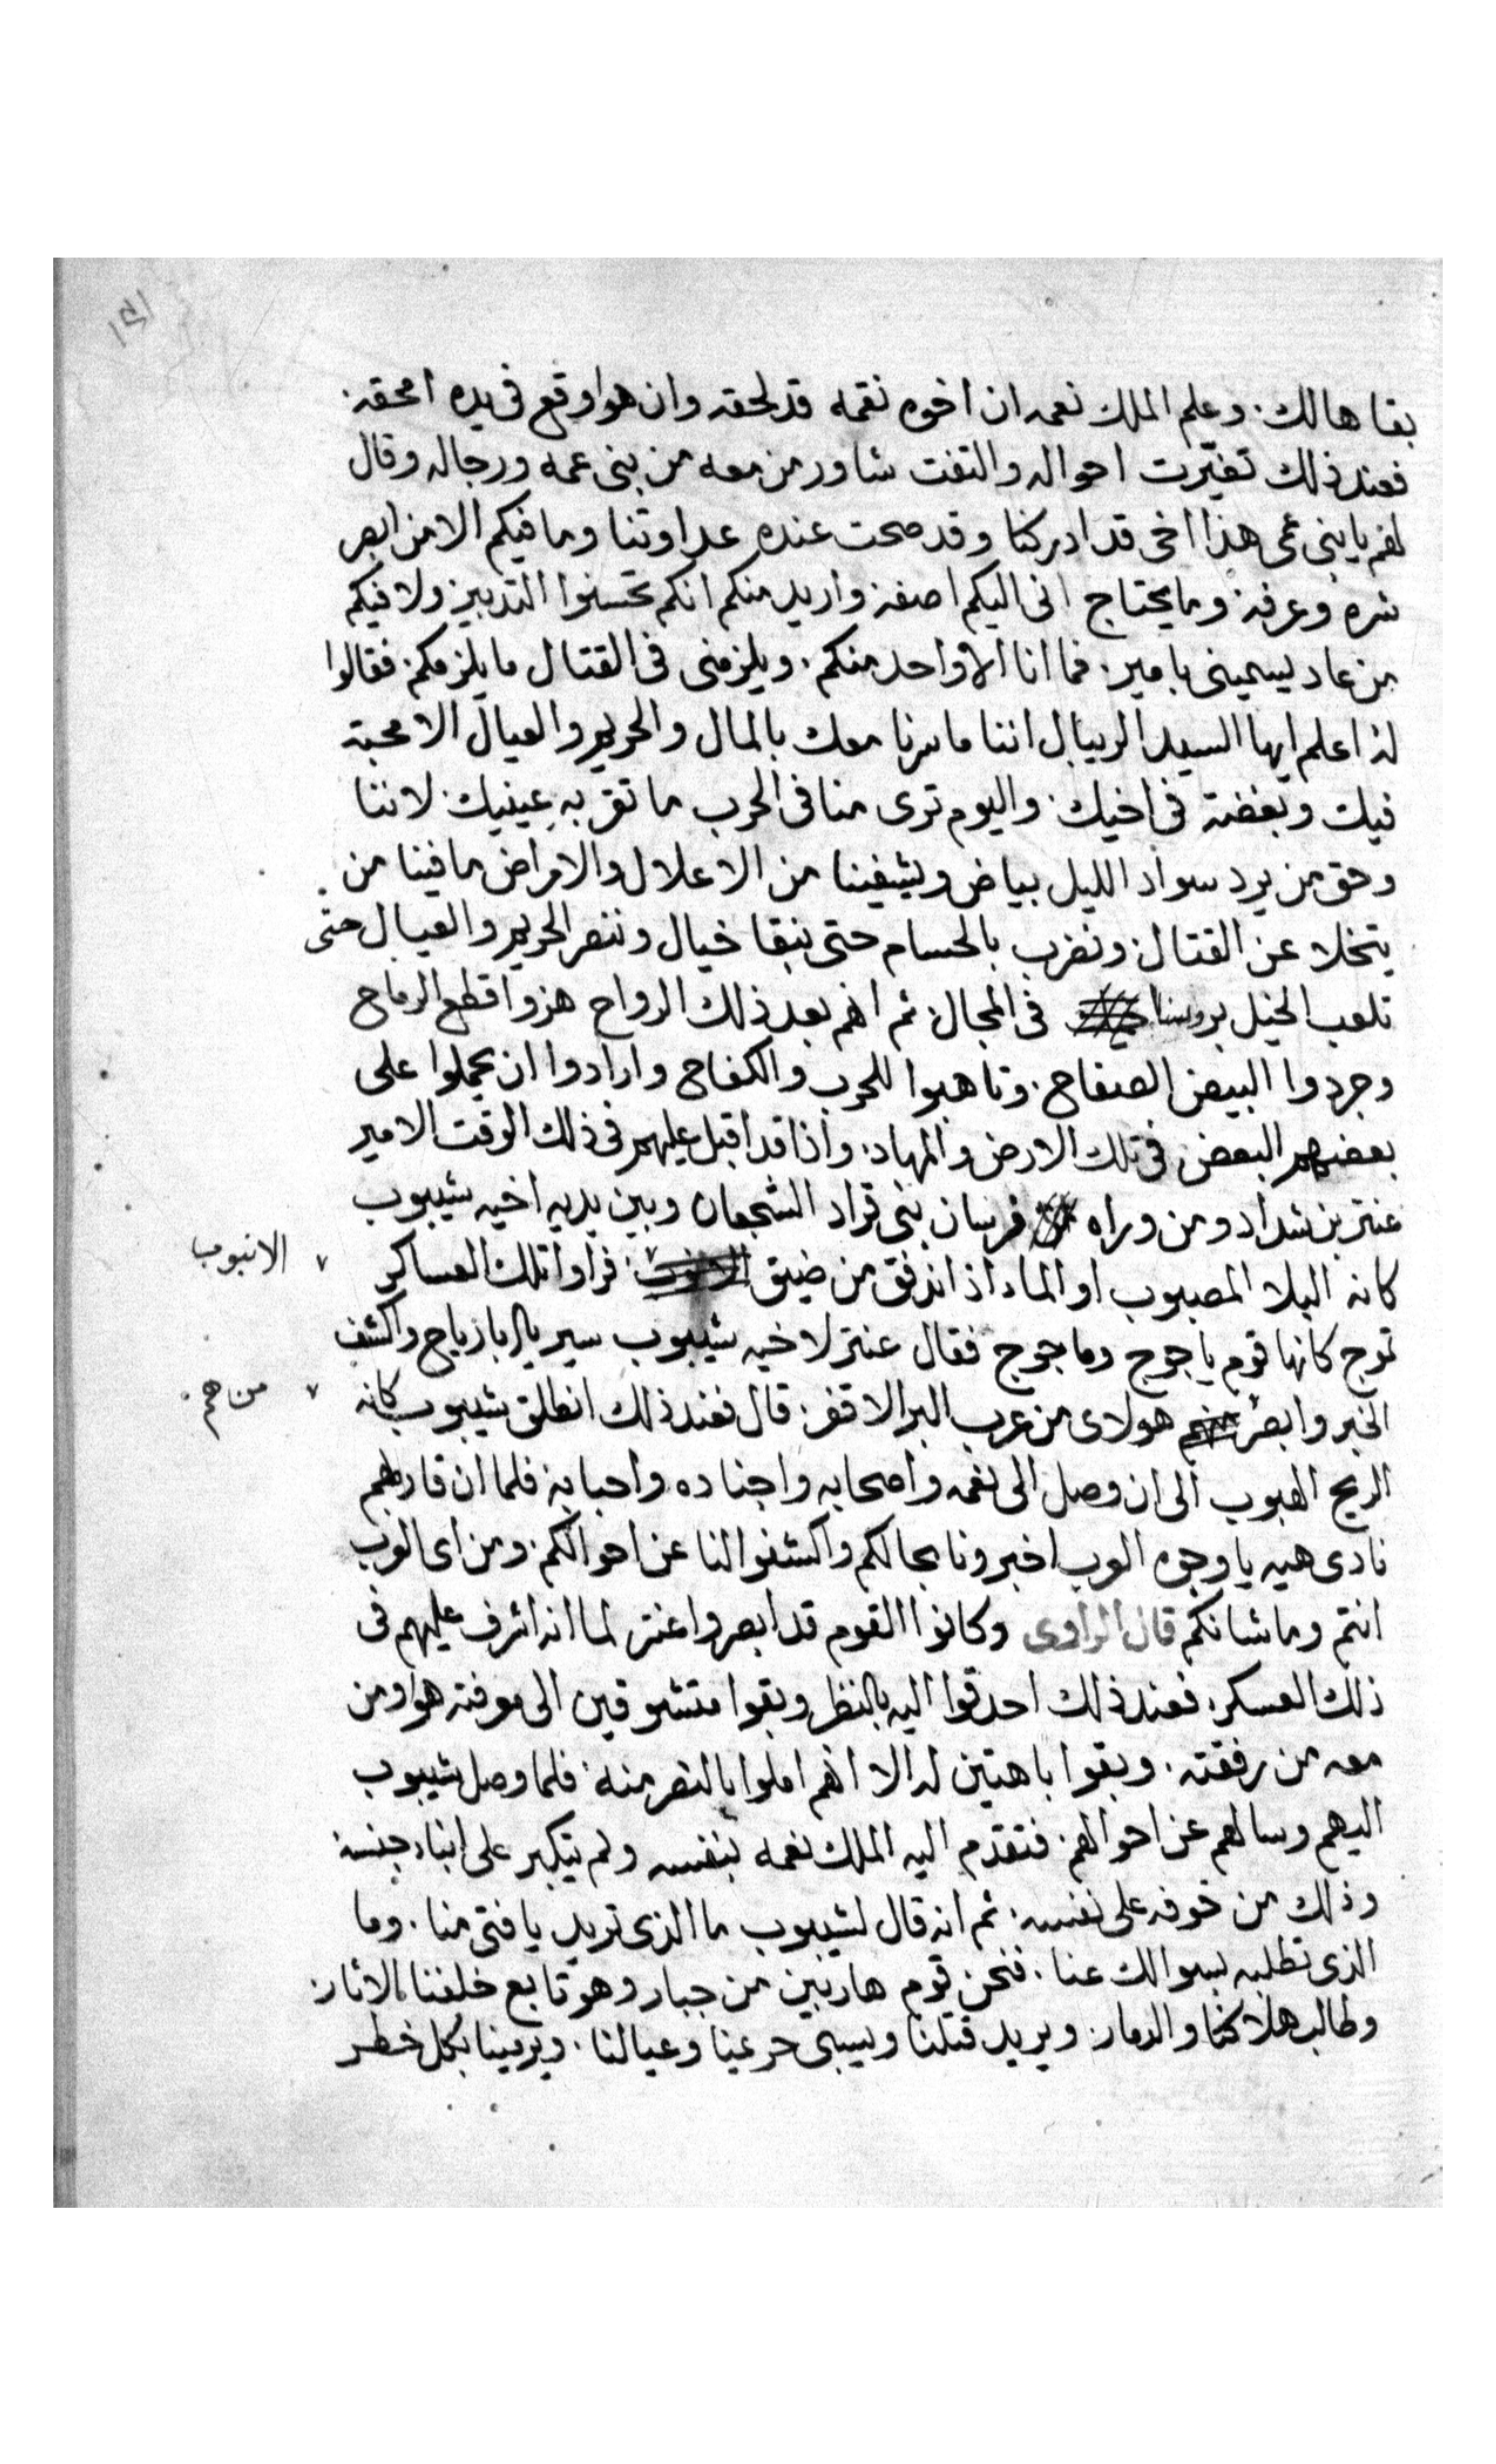 بقا هالك. وعلم الملك نعمه ان اخوه نقمه قد لحقه وان هوا وقع فى يده امحقه.
فعند ذلك تغيّرت احواله والتفت شاور من معه من بنى عمه ورجاله وقال
لهم يا بنى عمى هذا اخى قد ادركنا وقد صحت عنده عداوتنا وما فيكم الا من ابصر
شره وعرفه. وما يحتاج انى اليكم اصفه. واريد منكم انكم تحسنوا التدبير. ولا فيكم
من عاد يسمينى بامير. فما انا الا واحد منكم. ويلزمنى فى القتال ما يلزمكم. فقالوا
له اعلم ايها السيد الريبال اننا ما سرنا معك بالمال والحريم والعيال الا محبة
فيك وبغضة فى اخيك. واليوم ترى منا فى الحرب ما تقر به عينيك. لاننا
وحق من يرد سواد الليل بياض ويشفينا من الاعلال والامراض ما فينا من
يتخلا عن القتال. ونضرب بالحسام حتى نبقا خيال وننصر الحريم والعيال حتى
تلعب الخيل بروسنا فى المجال. ثم انهم بعد ذلك الرواح هزوا قطع الرماح
وجردوا البيض الصفاح. وتاهبوا للحرب والكفاح وارادوا ان يحملوا على
بعضهم البعض فى تلك الارض والمهاد. واذا قد اقبل عليهم فى ذلك الوقت الامير
عنتر بن شداد ومن وراه فرسان بنى قراد الشجعان وبين يديه اخيه شيبوب
كانه البلا المصبوب او الماء اذا اندفق من ضيق الانبوب فراوا تلك العساكر
تموج كانها قوم ياجوج وماجوج فقال عنتر لاخيه شيبوب سير يا ابا رياح واكشف
الخبر وابصر من هم هولاى من عرب البر الاقفر. قال فعند ذلك انطلق شيبوب كانه
الريح الهبوب الى ان وصل الى نعمه واصحابه واجناده واحبابه فلما ان قاربهم
نادى هيه يا وجوه العرب اخبرونا بحالكم واكشفوا لنا عن احوالكم. ومن اى العرب
انتم وما شانكم قال الراوى وكانوا القوم قد ابصروا عنتر لما انه اشرف عليهم فى
ذلك العسكر. فعند ذلك احدقوا اليه بالنظر وبقوا متشوقين الى معرفته هوا ومن
معه من رفقته. وبقوا باهتين له الا انهم املوا بالنصر منه. فلما وصل شيبوب
اليهم وسالهم عن احوالهم. فتقدم اليه الملك نعمه بنفسه ولم يتكبر على ابناء جنسه
وذلك من خوفه على نفسه. ثم انه قال لشيبوب ما الذى تريد يا فتى منا. وما
الذى تطلبه بسوالك عنا. فنحن قوم هاربين من جبار وهو تابع خلفنا الاثار.
وطالب هلاكنا والدمار. ويريد قتلنا ويسبى حريمنا وعيالنا. ويرمينا بكل خطر